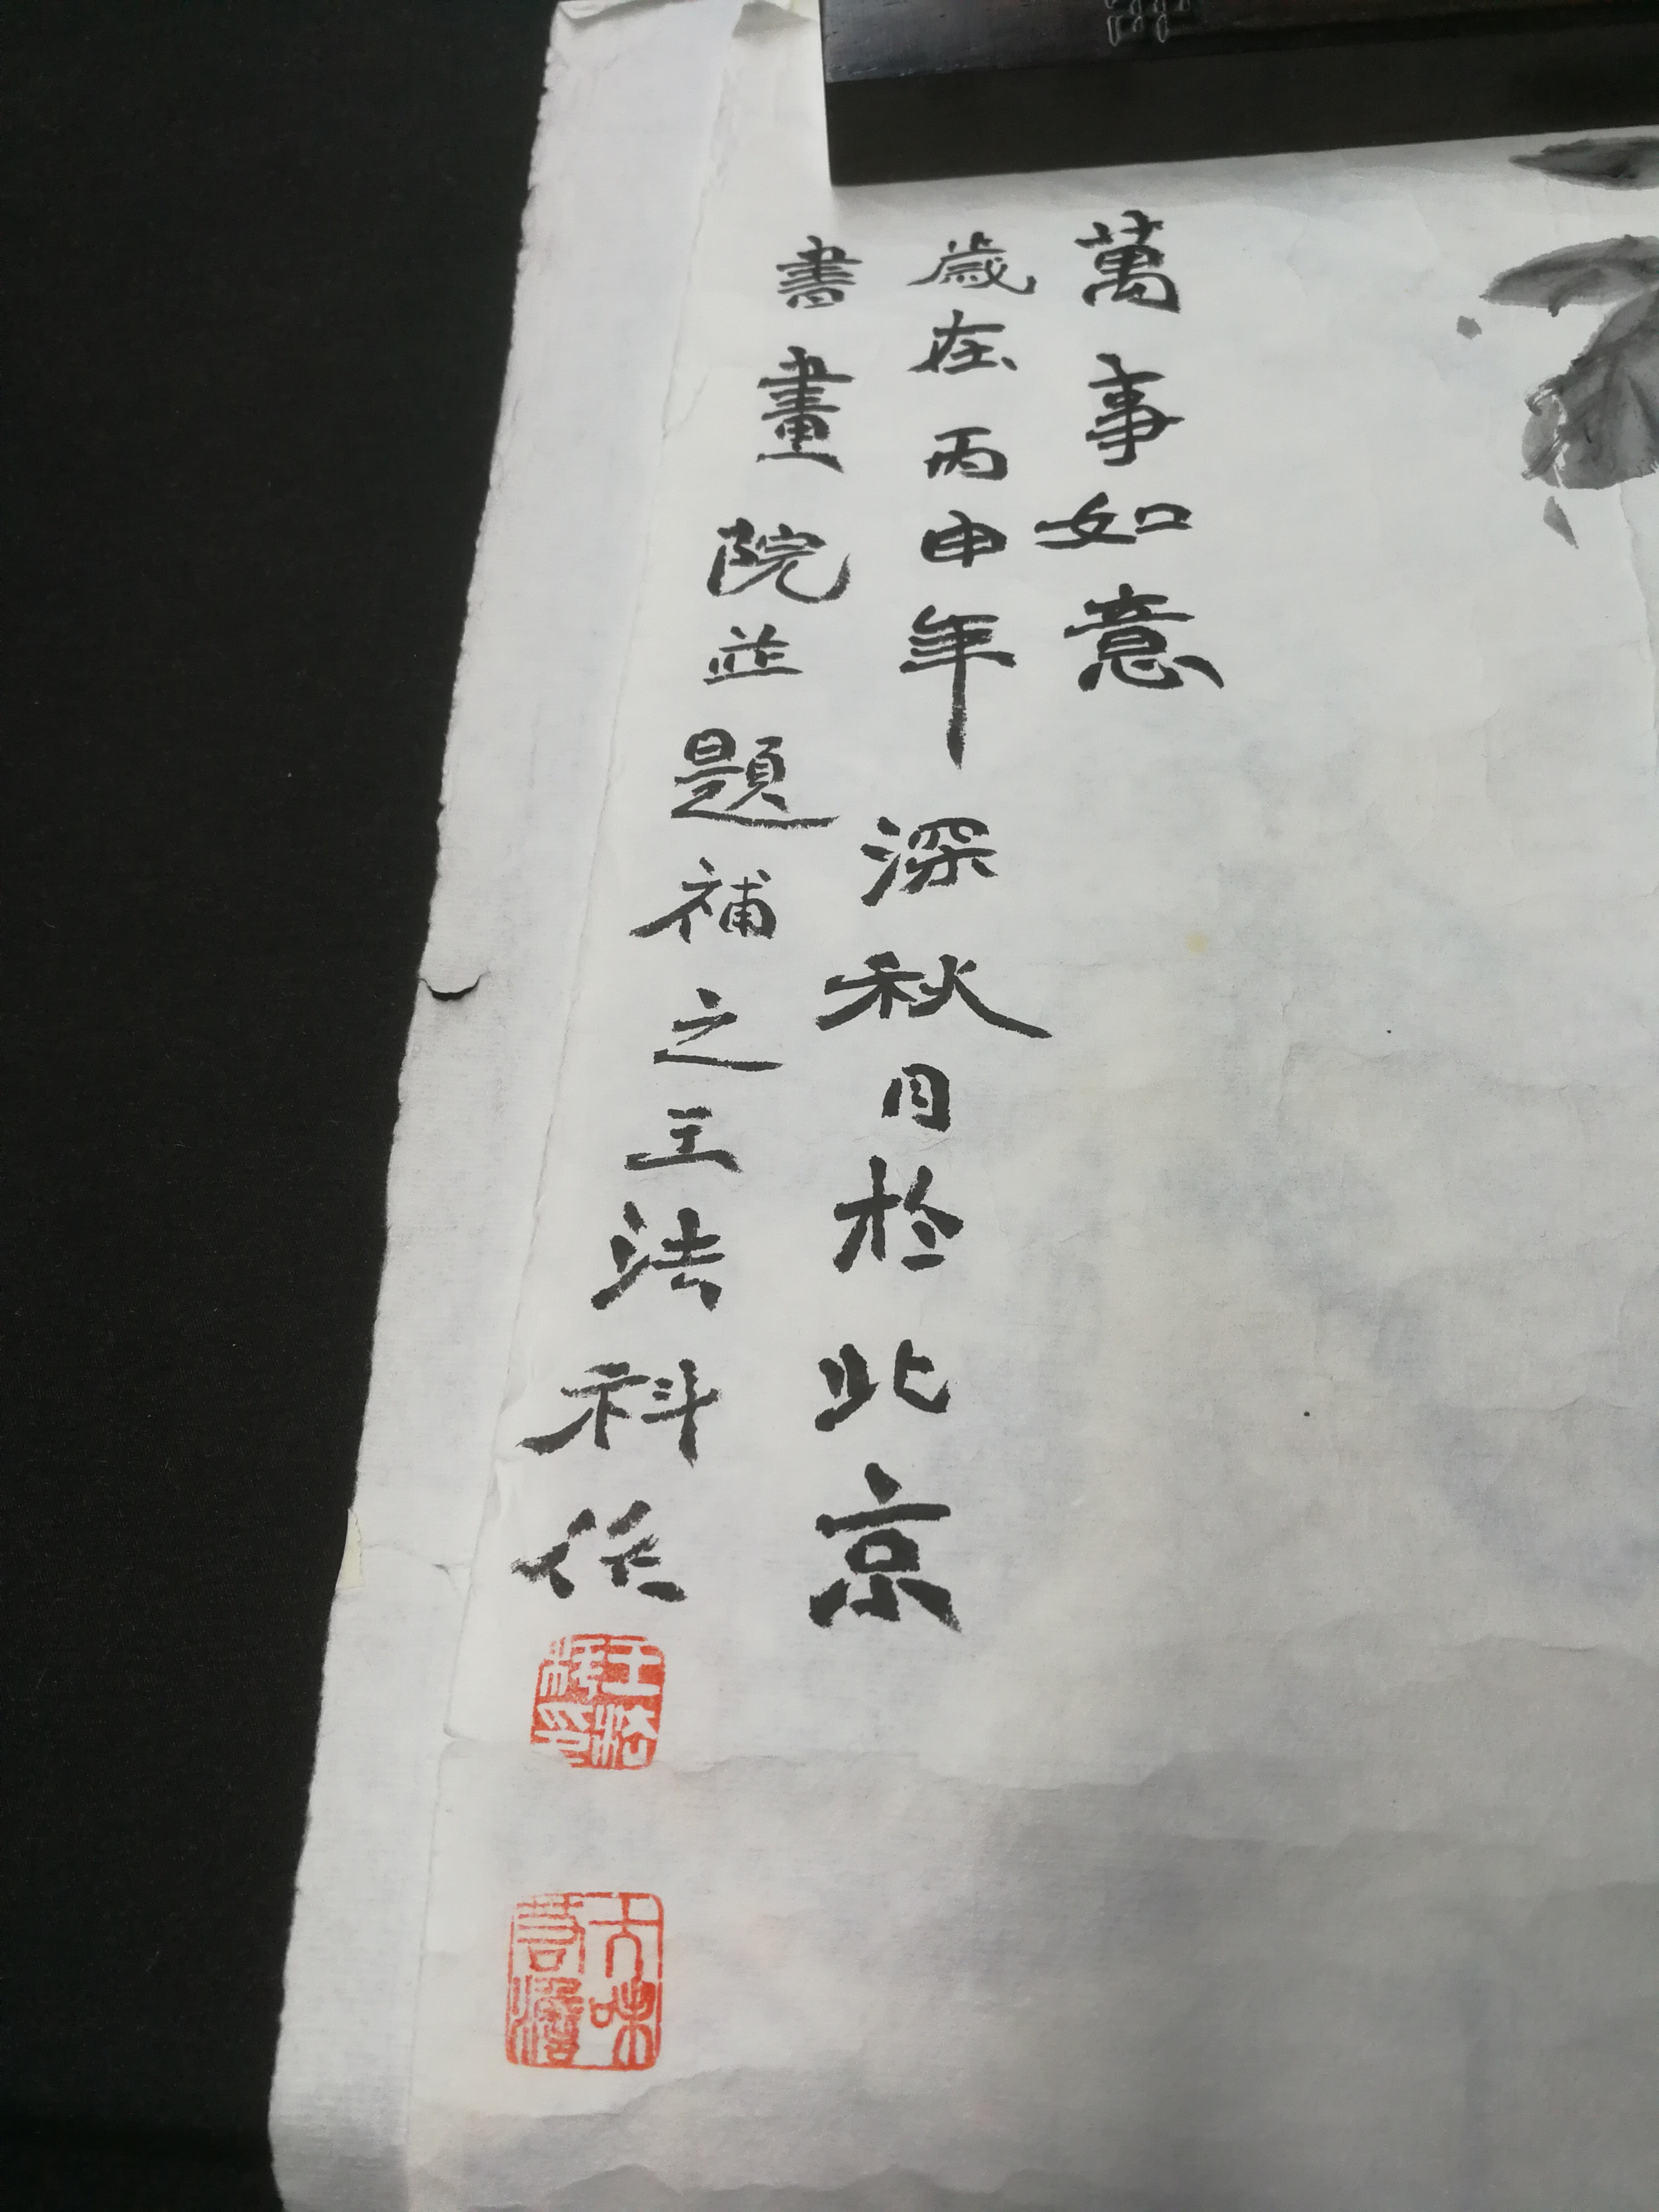 萬事如意
歲在丙申年深秋月於北京
書畫院並題補之王法科作
王法科印
大味若澹